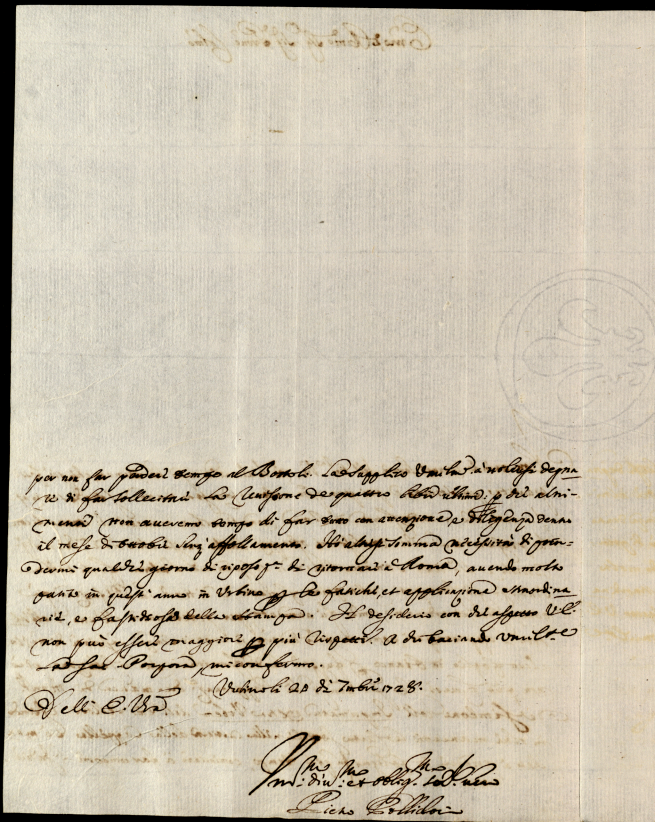 per non far perdere tempo al Bortoli. La supplico umilm. a volersi degna
re di far sollecitare la revisione de quattro libri ultimi: p. del altri-
mente non averemo tempo di far tutto con attenzione, e diligenza dentro
il mese di ottobre senz'affollamento. Ho altresi somma necessità di poter
dermi qualche giorno di riposo p.ª di ritornare a Roma, avendo molto
patito in questi anni in Urbino p le fatiche, et applicazione straordina
rie, e fastidiose della stampa. Il desiderio
non può esser maggiore p più rispetti. a baciando umil.e
la Sac. Porpora, mi confermo.
24 di 7mbre 1728.
Dell' E. Vra
Um.mo div.mo et oblig.mo
Pietro Pollidori